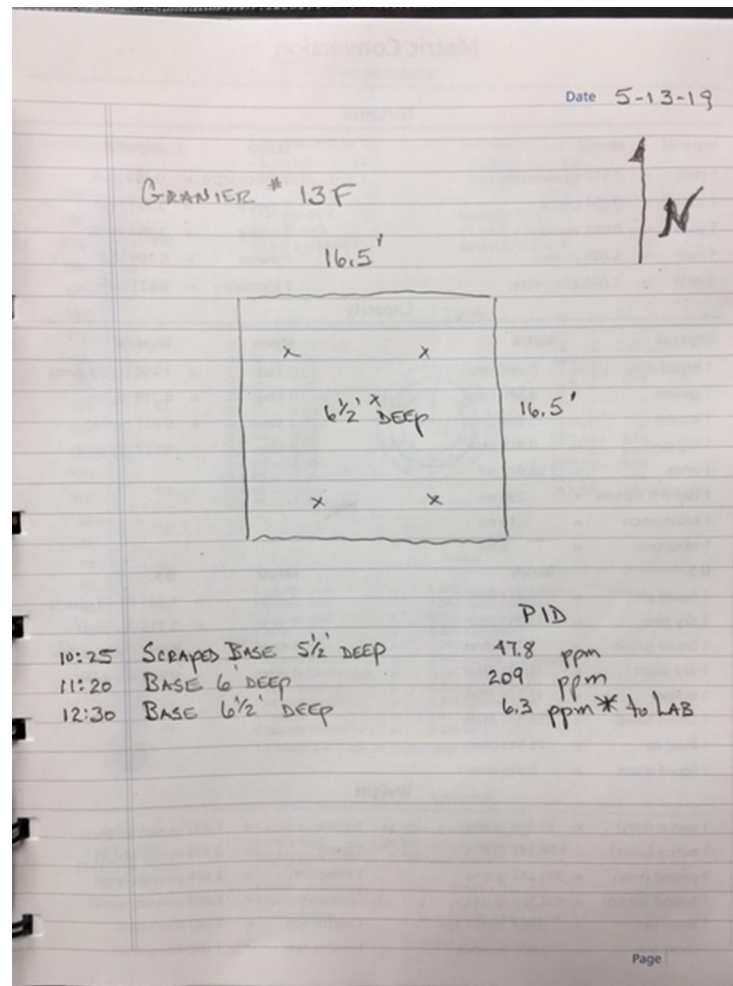 Date 5-13-19
N
GRANIER # 13F
16.5'
x x
x
6½' DEEP
16.5'
x x
PID
10:25 SCRAPED BASE 5½' DEEP 47.8 ppm
11:20 BASE 6' DEEP 209 ppm
12:30 BASE 6½' DEEP 6.3 ppm * to LAB
Page